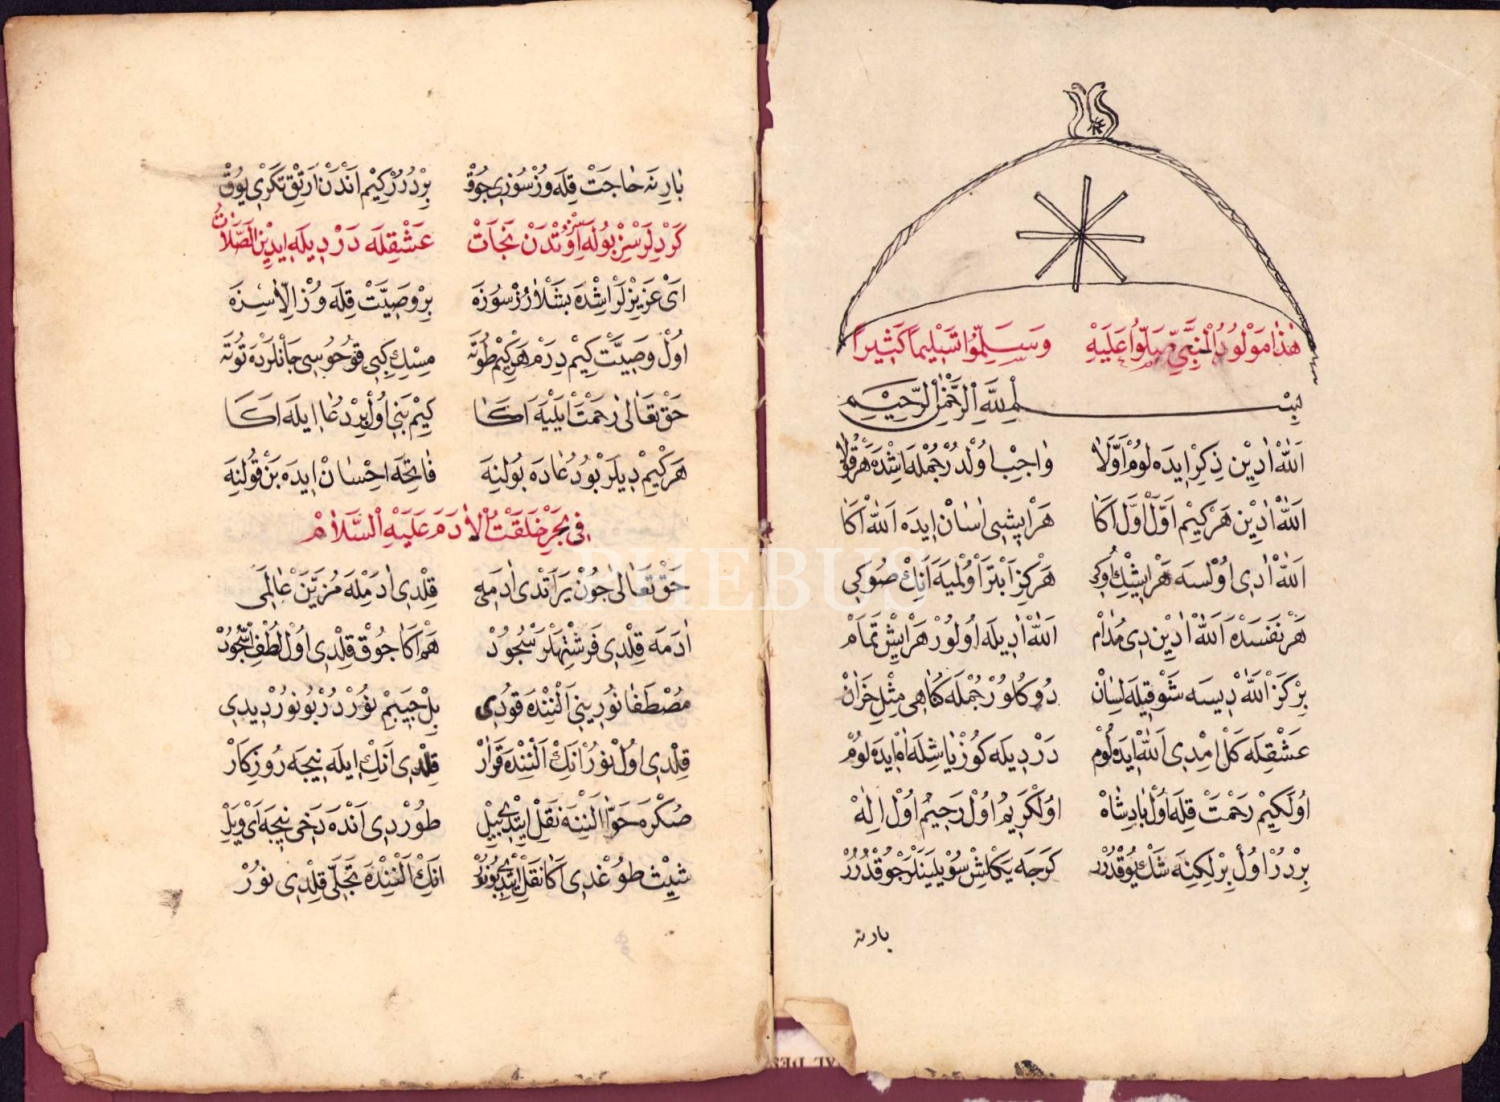 هٰذَا مَوْلُودُ النَّبِيِّ صَلُّوا عَلَيْهِ وَسَلِّمُوا تَسْلِيمًا كَثِيرًا
بِسْمِ اللّٰهِ الرَّحْمٰنِ الرَّحِيمِ
اَللّٰهْ اَدِينْ ذِكْرْ اِيدَه لُومْ اَوَّلَا وَاجِبْ اُولْدُرْ جُمْلَه اِشْدَه هَرْ قُولَا
اَللّٰهْ اَدِينْ هَرْ كِيمْ اُولْ اَوَّلْ اَكَا هَرْ اِيشِى اٰسَانْ اِيدَه اَللّٰهْ اَكَا
اَللّٰهْ اَدِى اُولْسَه هَرْ اِيشِكْ اُوكِى هَرْكِزْ اَبْتَرْ اُولْمِيَه اَنِكْ صُوكِى
هَرْ نَفَسْدَه اَللّٰهْ اَدِينْ دِى مُدَامْ اَللّٰهْ اَدِيلَه اُولُورْ هَرْ اِيشْ تَمَامْ
بِرْ كَزْ اَللّٰهْ دِيسَه شَوْقِيلَه لِسَانْ دُوكُلُورْ جُمْلَه كُنَاهِى مِثْلِ خَزَانْ
عَشْقِلَه كَلْ اِمْدِى اَللّٰهْ اِيدَه لُومْ دَرْدِيلَه كُوزْ يَاشِلَه اٰهْ اِيدَه لُومْ
اُولَه كِيمْ رَحْمَتْ قِلَه اُولْ پَادِشَاهْ اُولْ كَرِيمُ اُولْ رَحِيمُ اُولْ اِلٰهْ
بِرْدُرْ اُولْ بِرْلِكِنَه شَكْ يُوقْدُرُرْ كَرْجَه يَاكْلِشْ سُويْلَيَنْلَرْ چُوقْدُرُرْ
بارنه
بَارِنَه حَاجَتْ قِلَه وُزْ سُوزِى چُوقْ بِرْدُرُرْ كِيمْ اَنْدَنْ اَرْتِقْ تَكْرِى يُوقْ
كَرْ دِلَرْسِزْ بُولَه سِزْ اُوتْدَنْ نَجَاتْ عَشْقِلَه دَرْدِيلَه اِيدِينْ الصَّلَاتْ
اَىْ عَزِيزْلَرْ اِشْدَه بَشْلَارُزْ سُوزَه بِرْ وَصِيَّتْ قِلَه وُزْ اِلَّا سِزَه
اُولْ وَصِيَّتْ كِيمْ دِرَمْ هَرْ كِيمْ طُوتَه مِسْكْ كِبِى قُوخُوسِى جَانْلَرْدَه تُوتَه
حَقْ تَعَالٰى رَحْمَتْ اَيْلَيَه اَكَا كِيمْ بَنِى اُولْ بِرْ دُعَا اِيلَه اَكَا
هَرْ كِيمْ دِيلَرْ بُو دُعَادَه بُولُنَه فَاتِحَه اِحْسَانْ اِيدَه بَنْ قُولِنَه
فِى بَحْرِ خِلْقَتُ الْاٰدَمَ عَلَيْهِ السَّلَامْ
حَقْ تَعَالٰى چُونْ يَرَاتْدِى اٰدَمِى قِلْدِى اٰدَمْلَه مُزَيَّنْ عَالَمِى
اٰدَمَه قِلْدِى فَرِشْتَهلَرْ سُجُودْ هَمْ اَكَا چُوقْ قِلْدِى اُولْ لُطْفِ اسِّجُودْ
مُصْطَفَا نُورِينِى اَلْنِنْدَه قُودِى بِلْ حَبِيبِمْ نُورُدُرْ بُو نُورْ دِيدِى
قِلْدِى اُولْ نُورْ اَنِكْ اَلْنِنْدَه قَرَارْ قِلْدِى اَنِكْ اِيلَه نِيجَه رُوزِكَارْ
صُكْرَه حَوَّا اَلْنِنَه نَقْلْ اِيتْدِى بِيلْ طُورْدِى اَنْدَه دَخِى نِيجَه اَىْ وَيِلْ
شِيثْ طُوغْدِى اَكَا نَقْلْ اِيتْدِى بُو نُورْ اَنِكْ اَلْنِنْدَه تَجَلِّى قِلْدِى نُورْ
PHEBUS